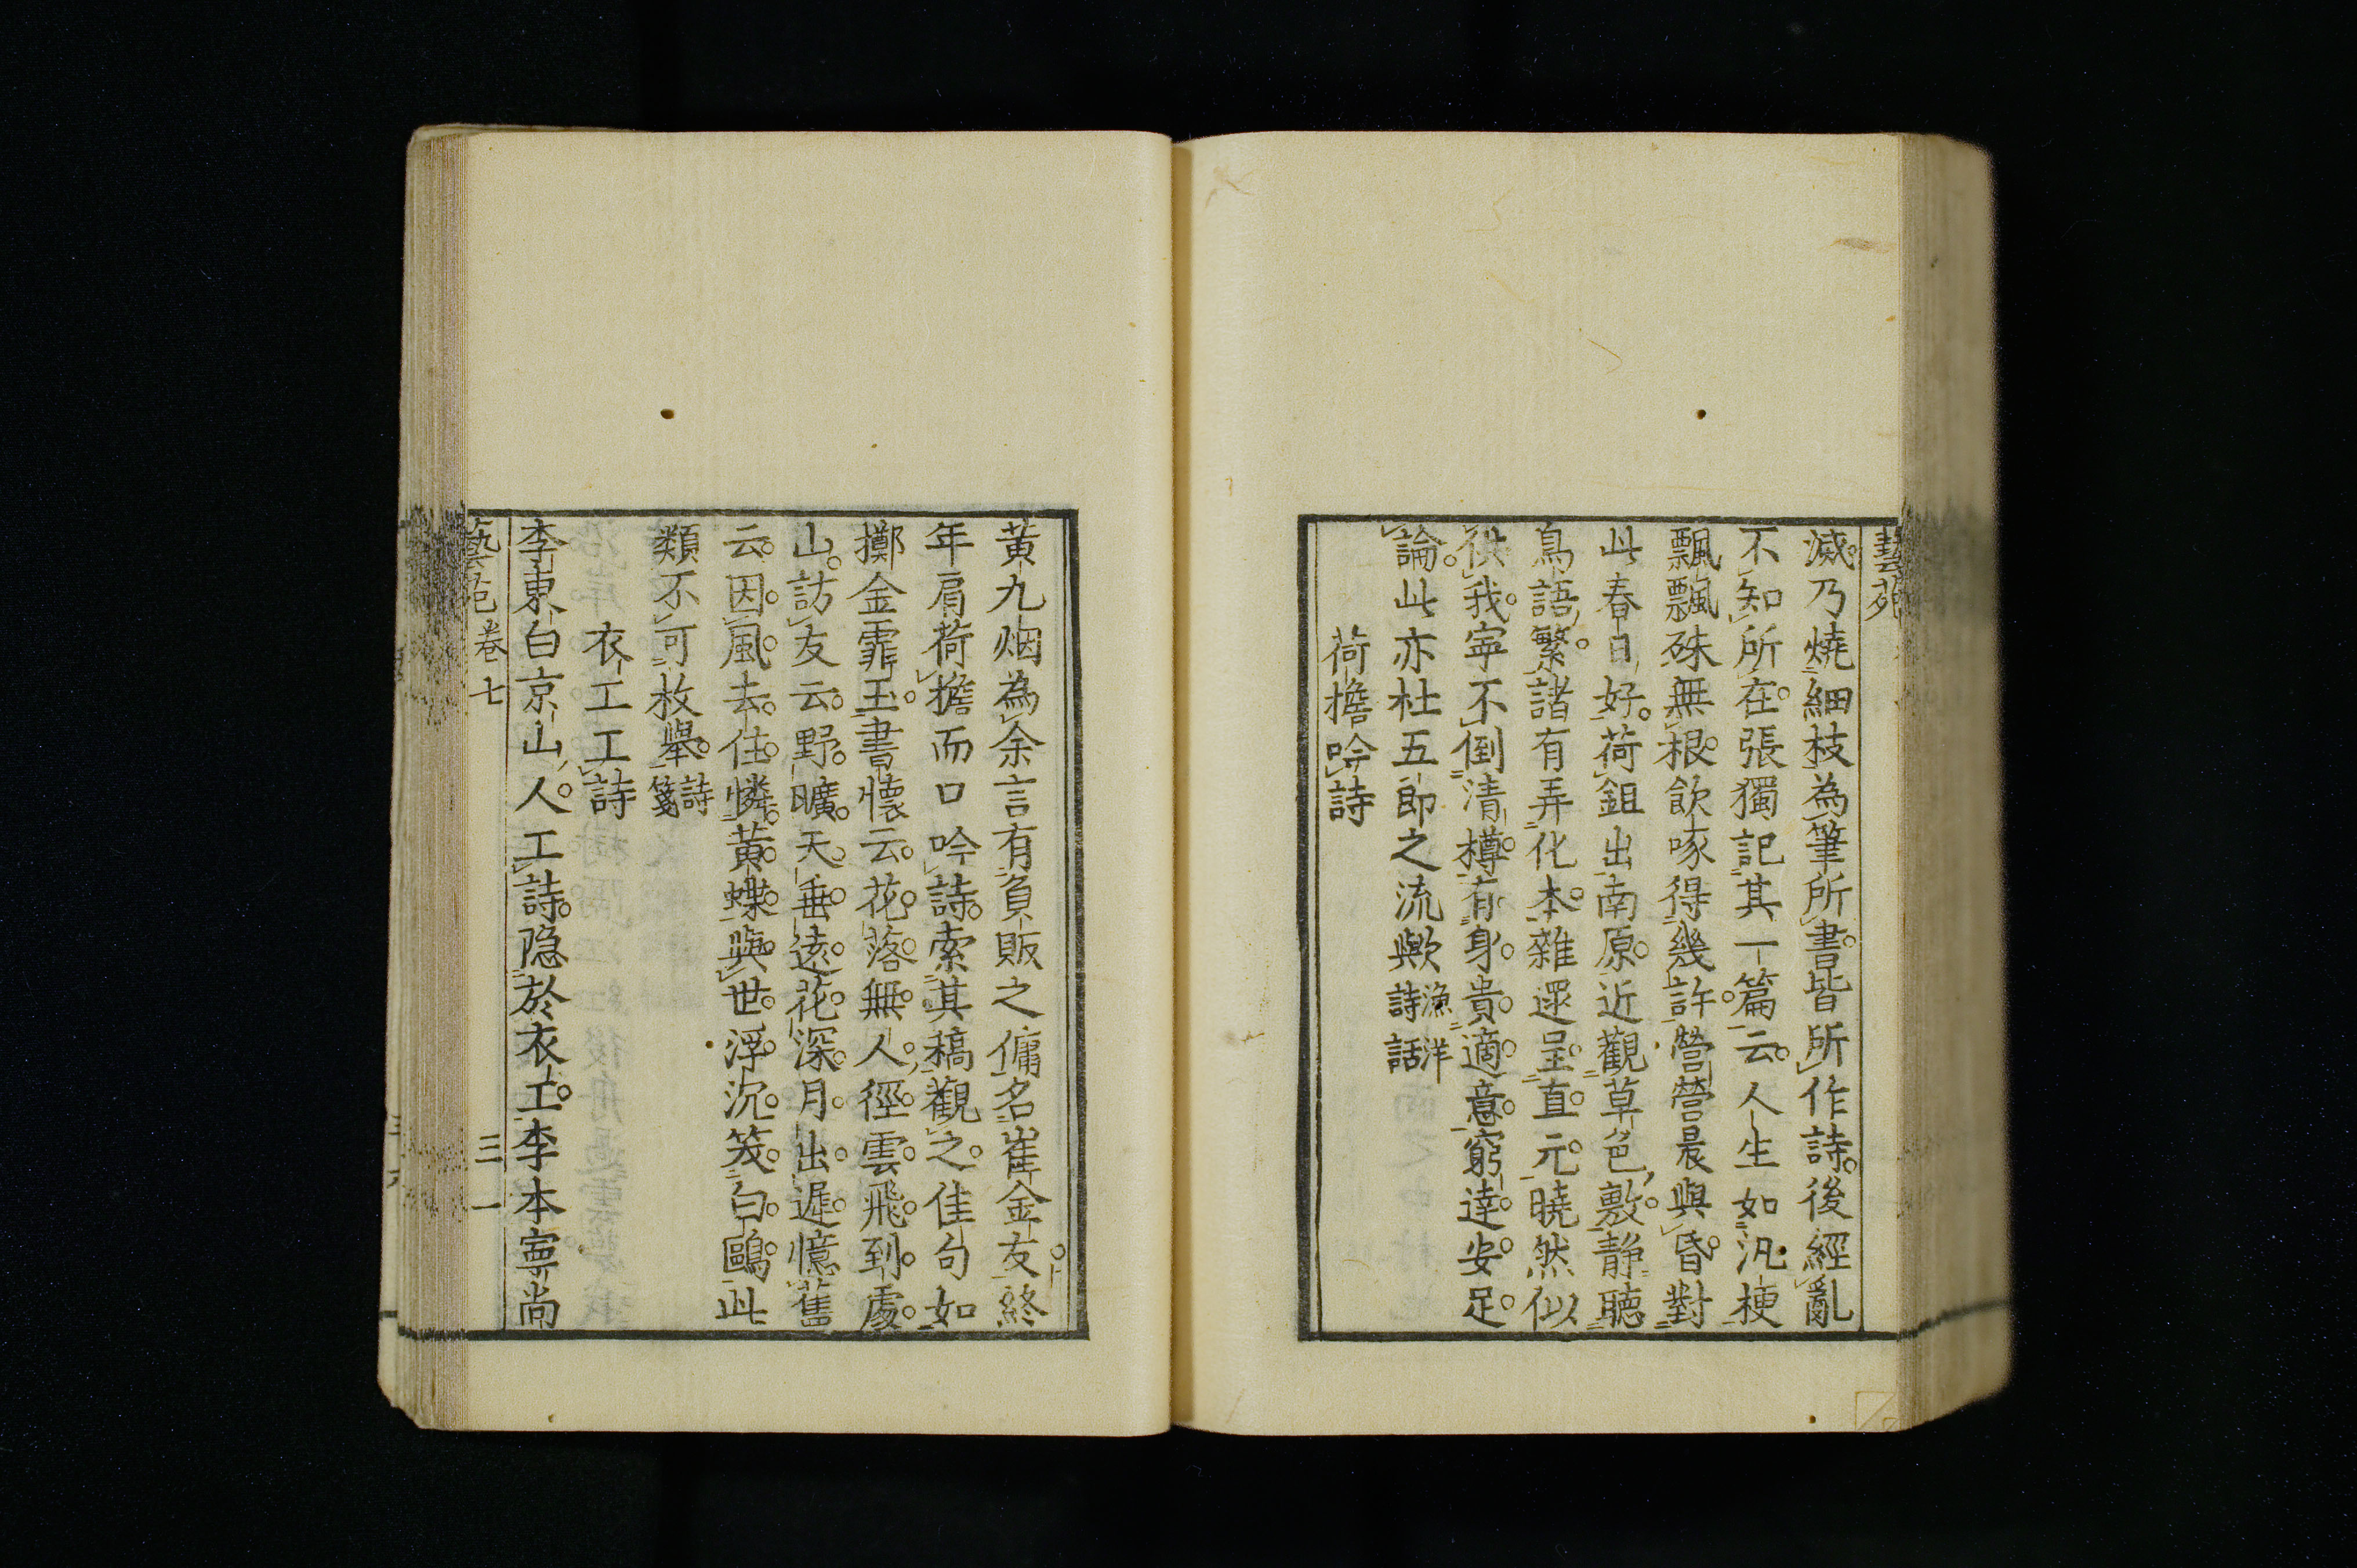 藝苑
滅乃燒細枝為筆所書皆所作詩後經亂
不知所在張獨記其一篇云人生如汎梗
飄飄殊無根飲啄得幾許營營晨與昏對
此春日好荷鉏出南原近觀草色敷静聽
鳥語繁諸有弄化本雜還呈直元曉然似
供我寧不倒清樽有身貴適意窮達安足
論此亦杜五郎之流歟漁洋詩話
荷擔吟詩
黄九烟為余言有負販之傭名崔金友終
年肩荷擔而口吟詩索其稿觀之佳句如
擲金霏玉書懷云花落無人徑雲飛到處
山訪友云野曠天垂遠花深月出遲憶舊
云因風去住憐黄蝶與世浮沉笑白鷗此
類不可枚舉詩箋
衣工工詩
李東白京山人工詩隐於衣工李本寧尚
藝苑卷七 三一